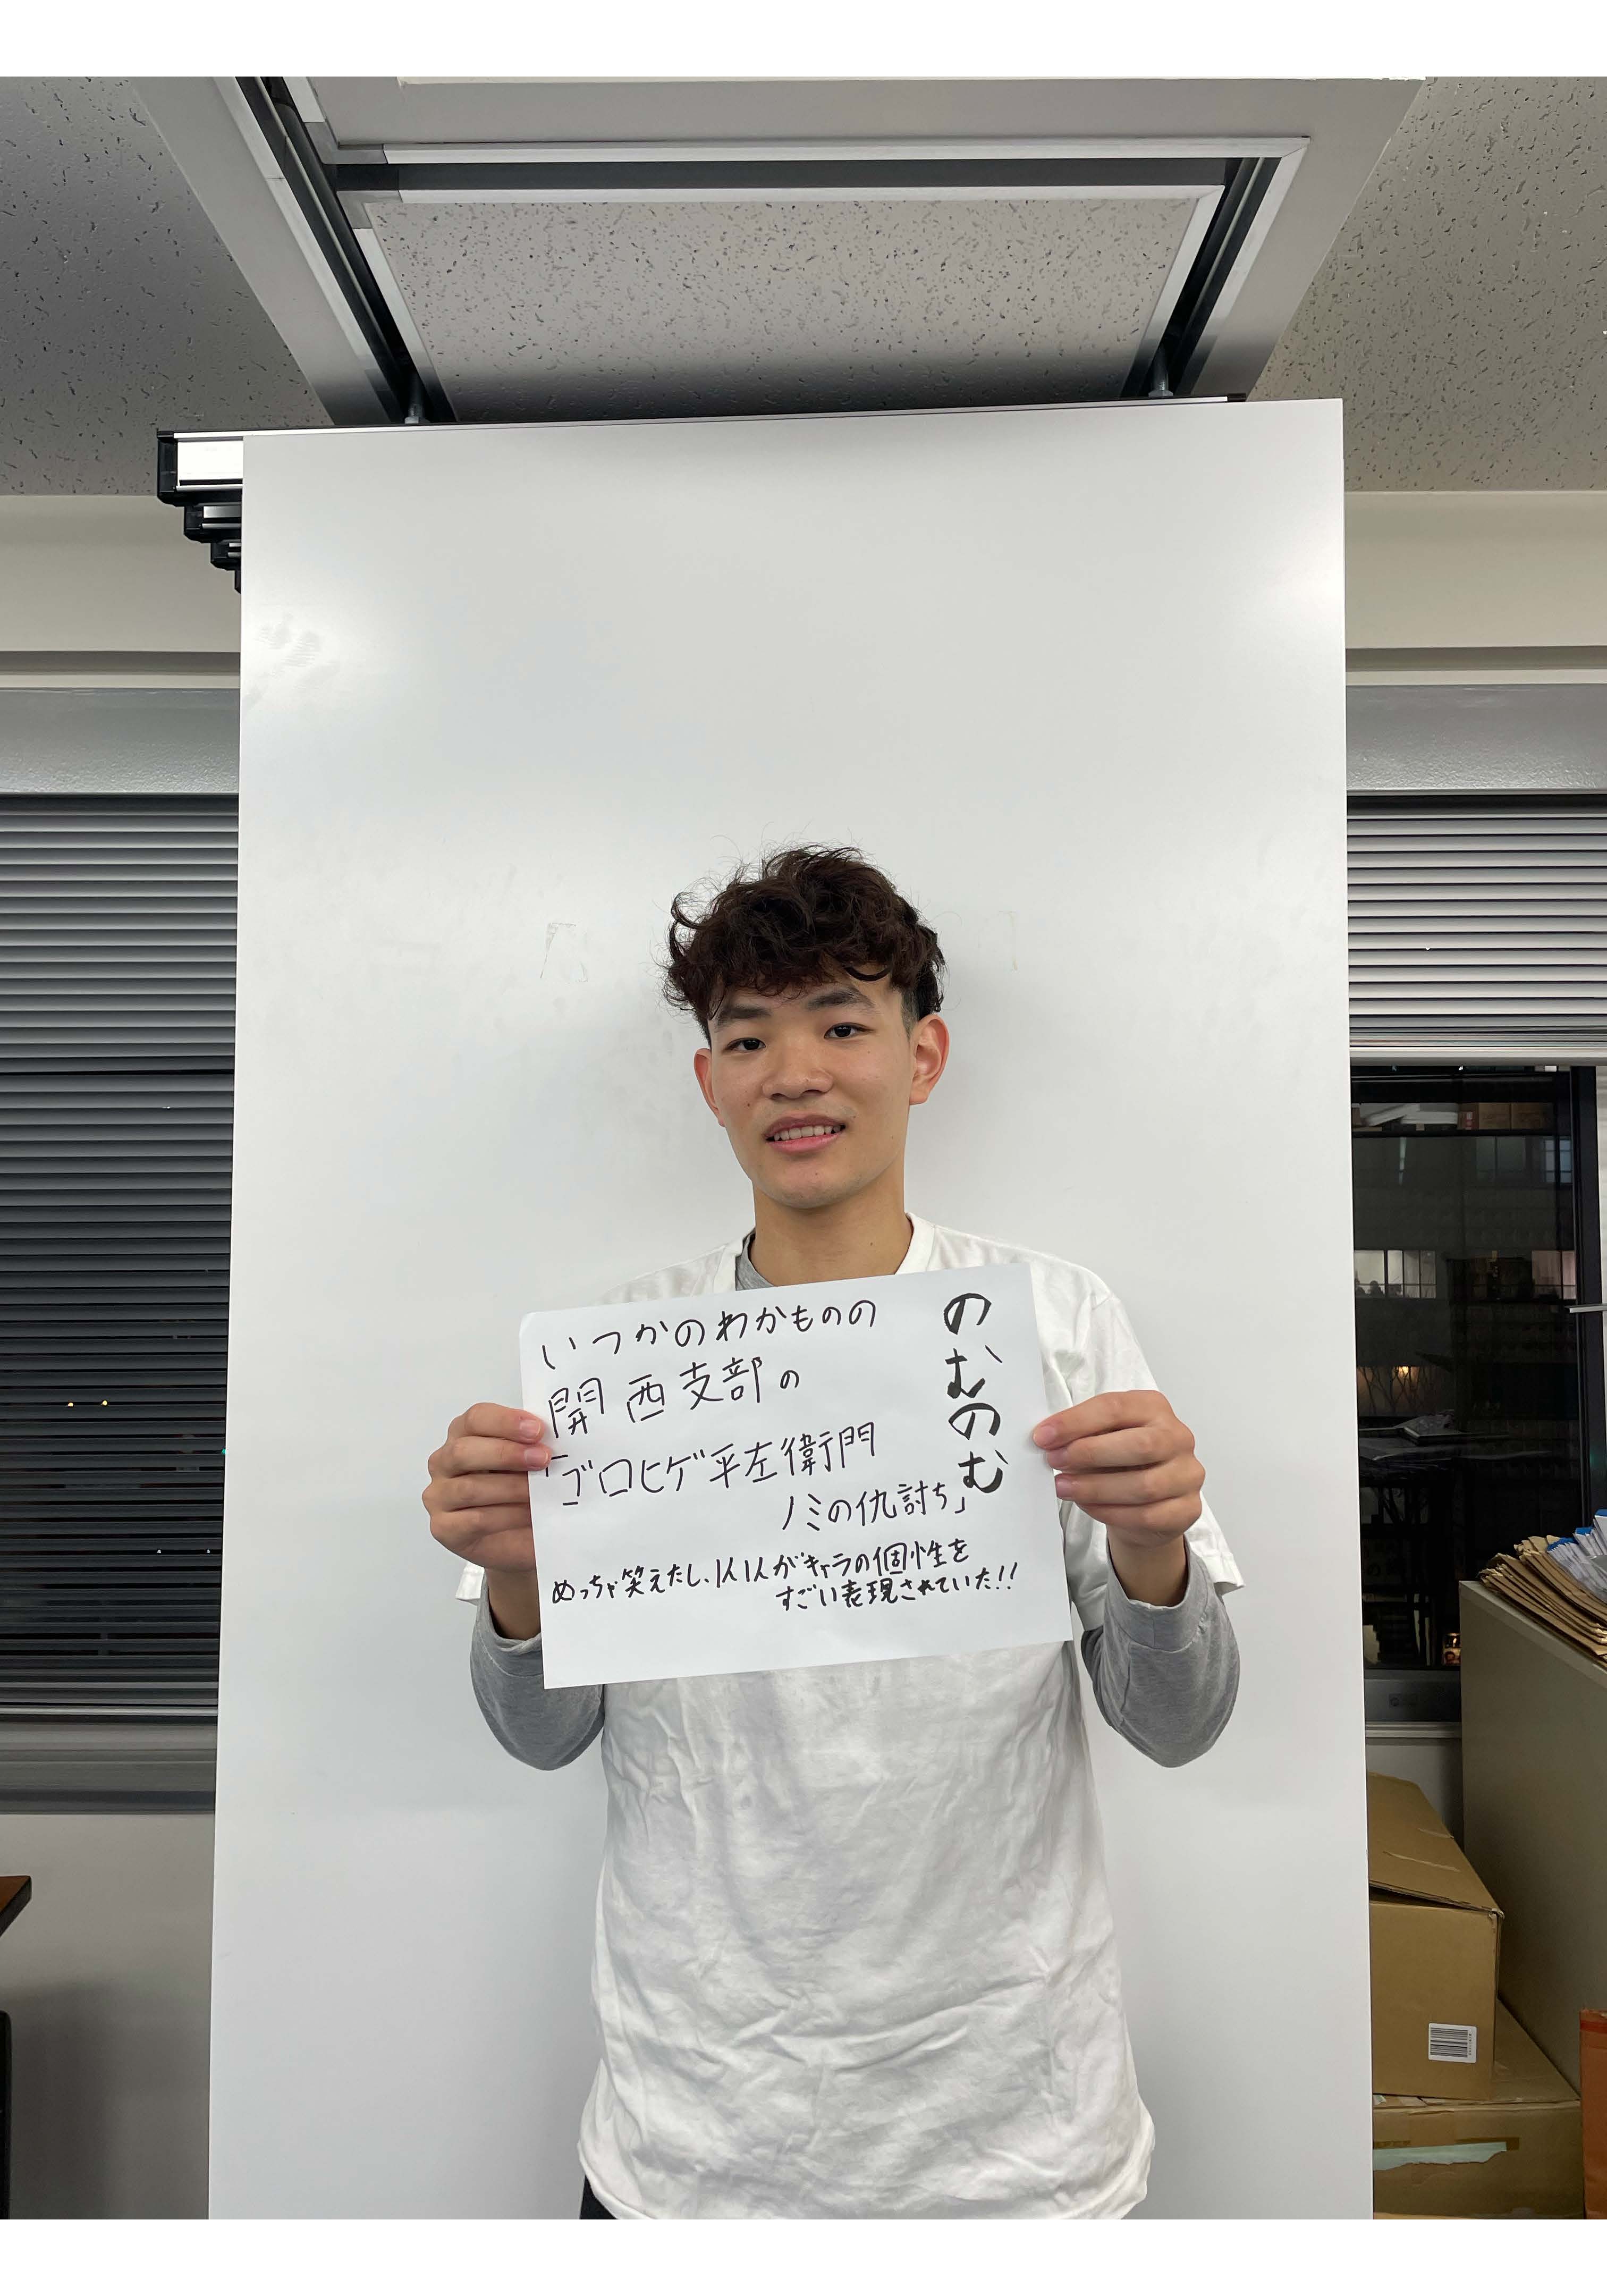 のむのむ
いつかのわかものの
関西支部の
「ゴロヒゲ平左衛門
ノミの仇討ち」
めっちゃ笑えたし、1人1人がキャラの個性を
すごい表現されていた!!